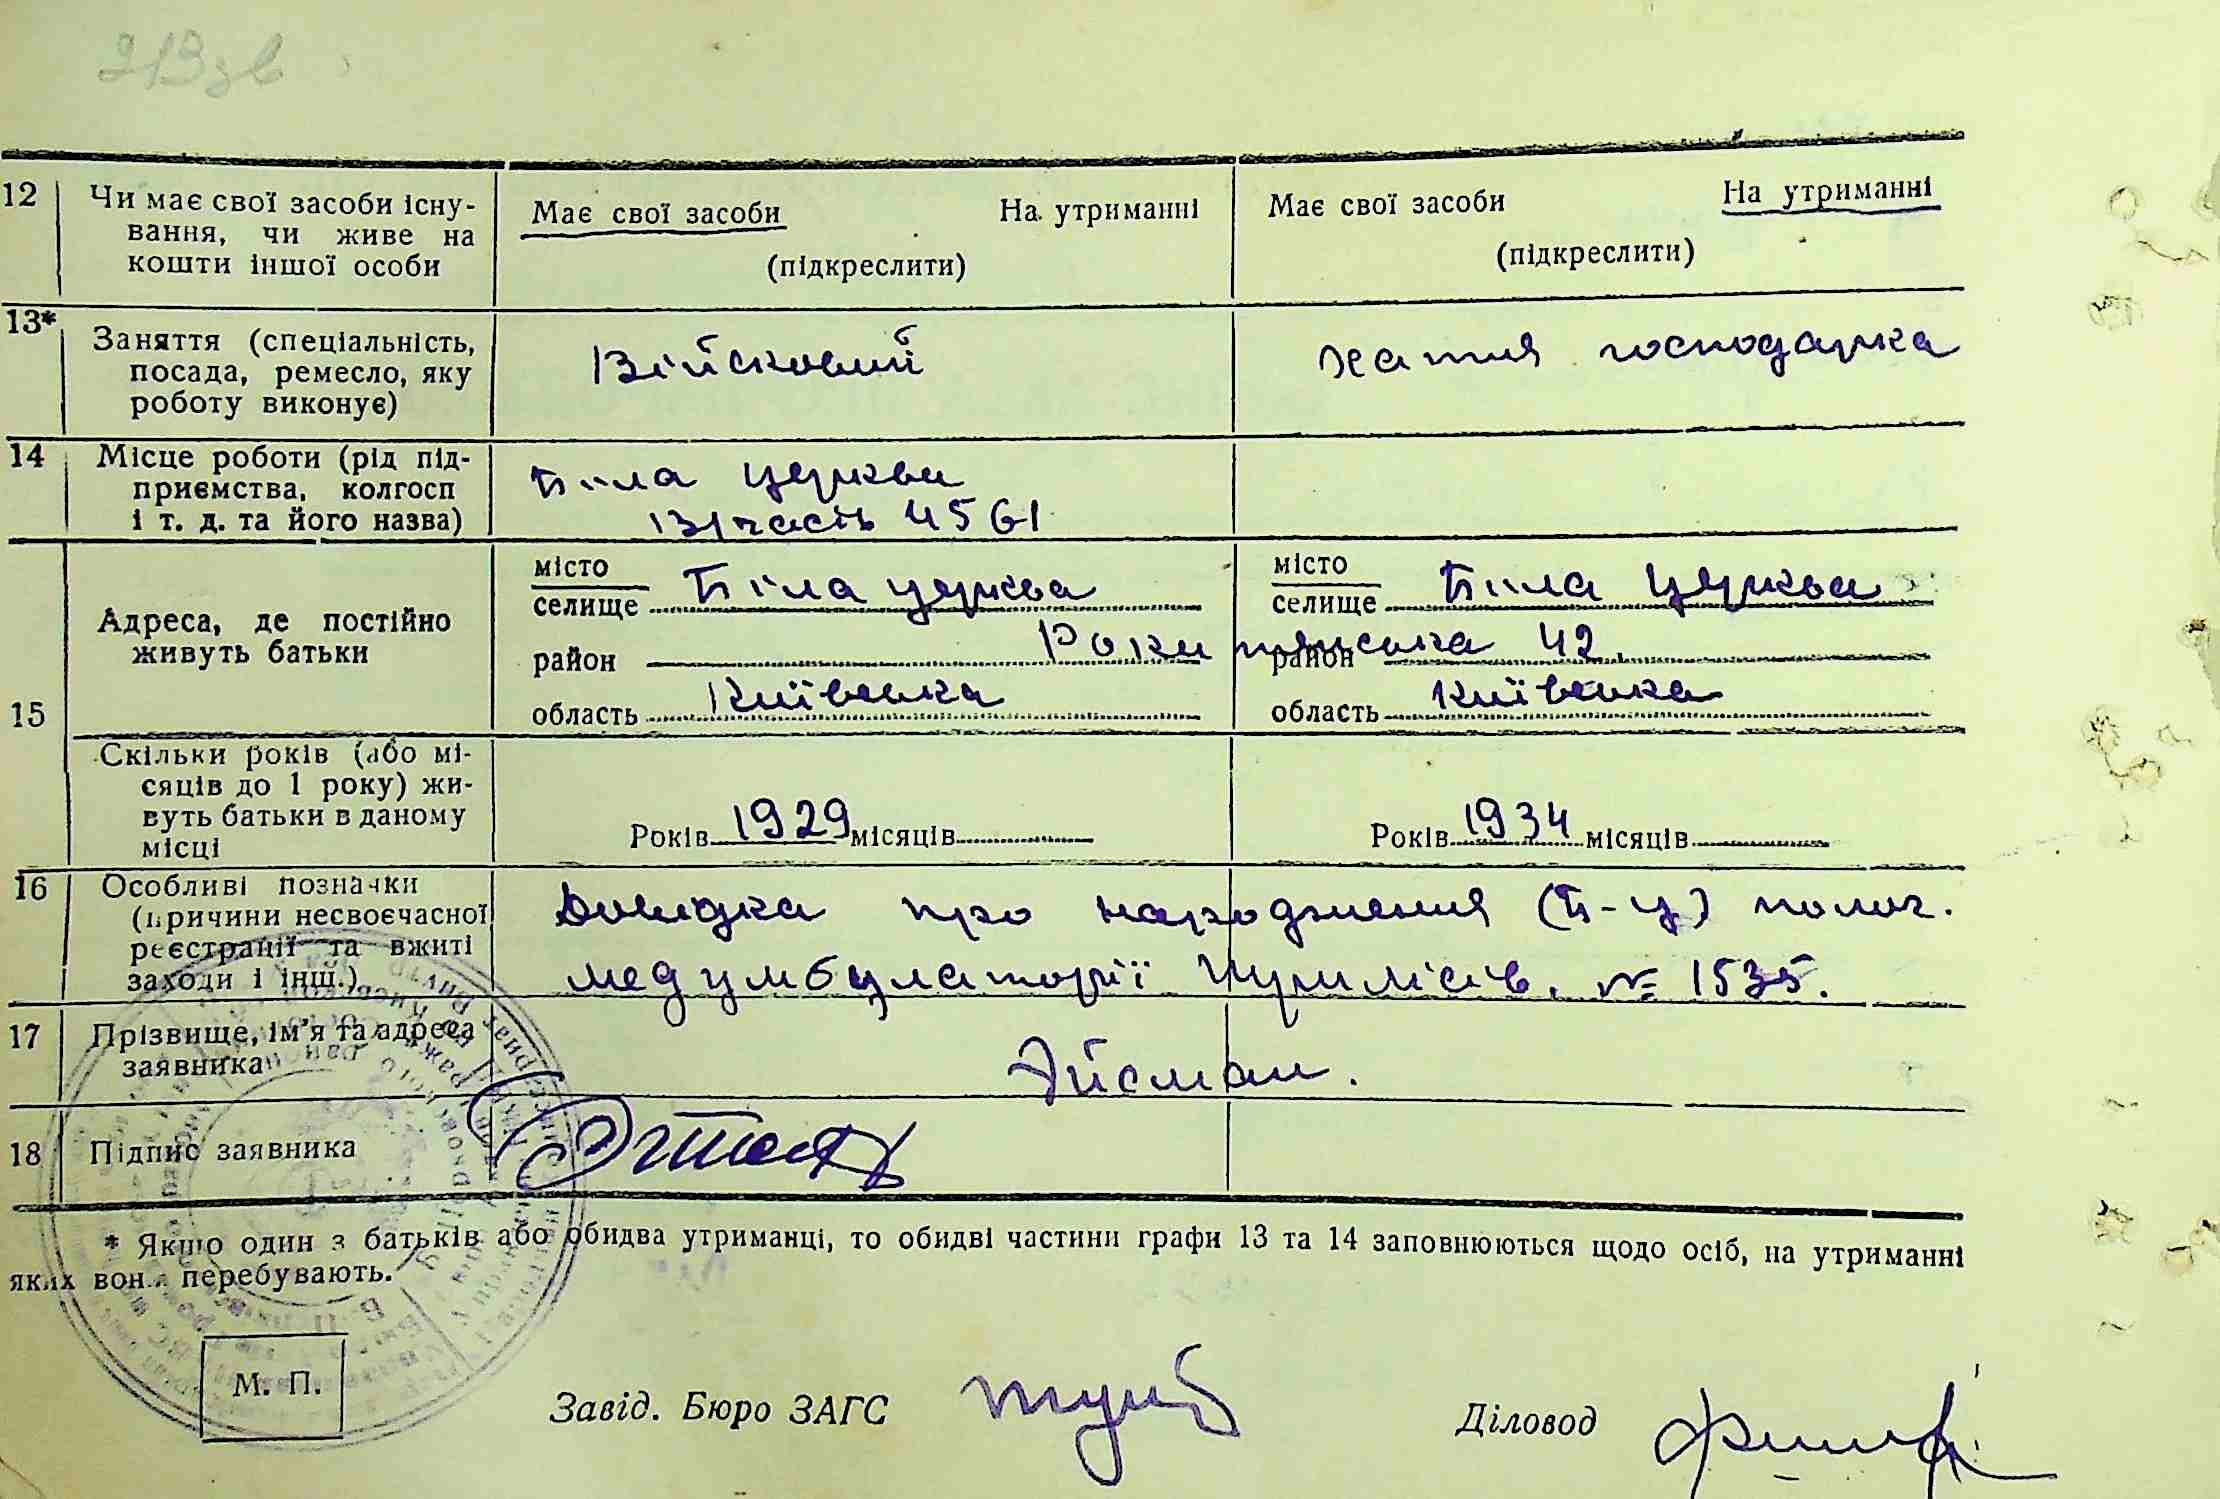 213зв
12 Чи має свої засоби існу- Має свої засоби На утриманні Має свої засоби На утриманні
вання, чи живе на (підкреслити) (підкреслити)
кошти іншої особи
13* Заняття (спеціальність, Військовий хатня господарка
посада, ремесло, яку
роботу виконує)
14 Місце роботи (рід під- Біла церква
приємства, колгосп В/часть 4561
і т. д. та його назва)
15 Адреса, де постійно живуть батьки
місто
селище Біла церква
район Рокитянська 42
область Київська
місто
селище Біла церква
район
область Київська
Скільки років (або мі-
сяців до 1 року) жи-
вуть батьки в даному
місці
Років 1929 місяців Років 1934 місяців
16 Особливі позначки Довидка про народження (Б-ц)
(причини несвоєчасної
реєстрації та вжиті
заходи і інш.) № 1535.
17 Прізвище, ім'я та адреса Эйсман.
заявника
18 Підпис заявника
* Якщо один з батьків або обидва утриманці, то обидві частини графи 13 та 14 заповнюються щодо осіб, на утриманні
яких вони перебувають.
М. П.
Завід. Бюро ЗАГС Діловод